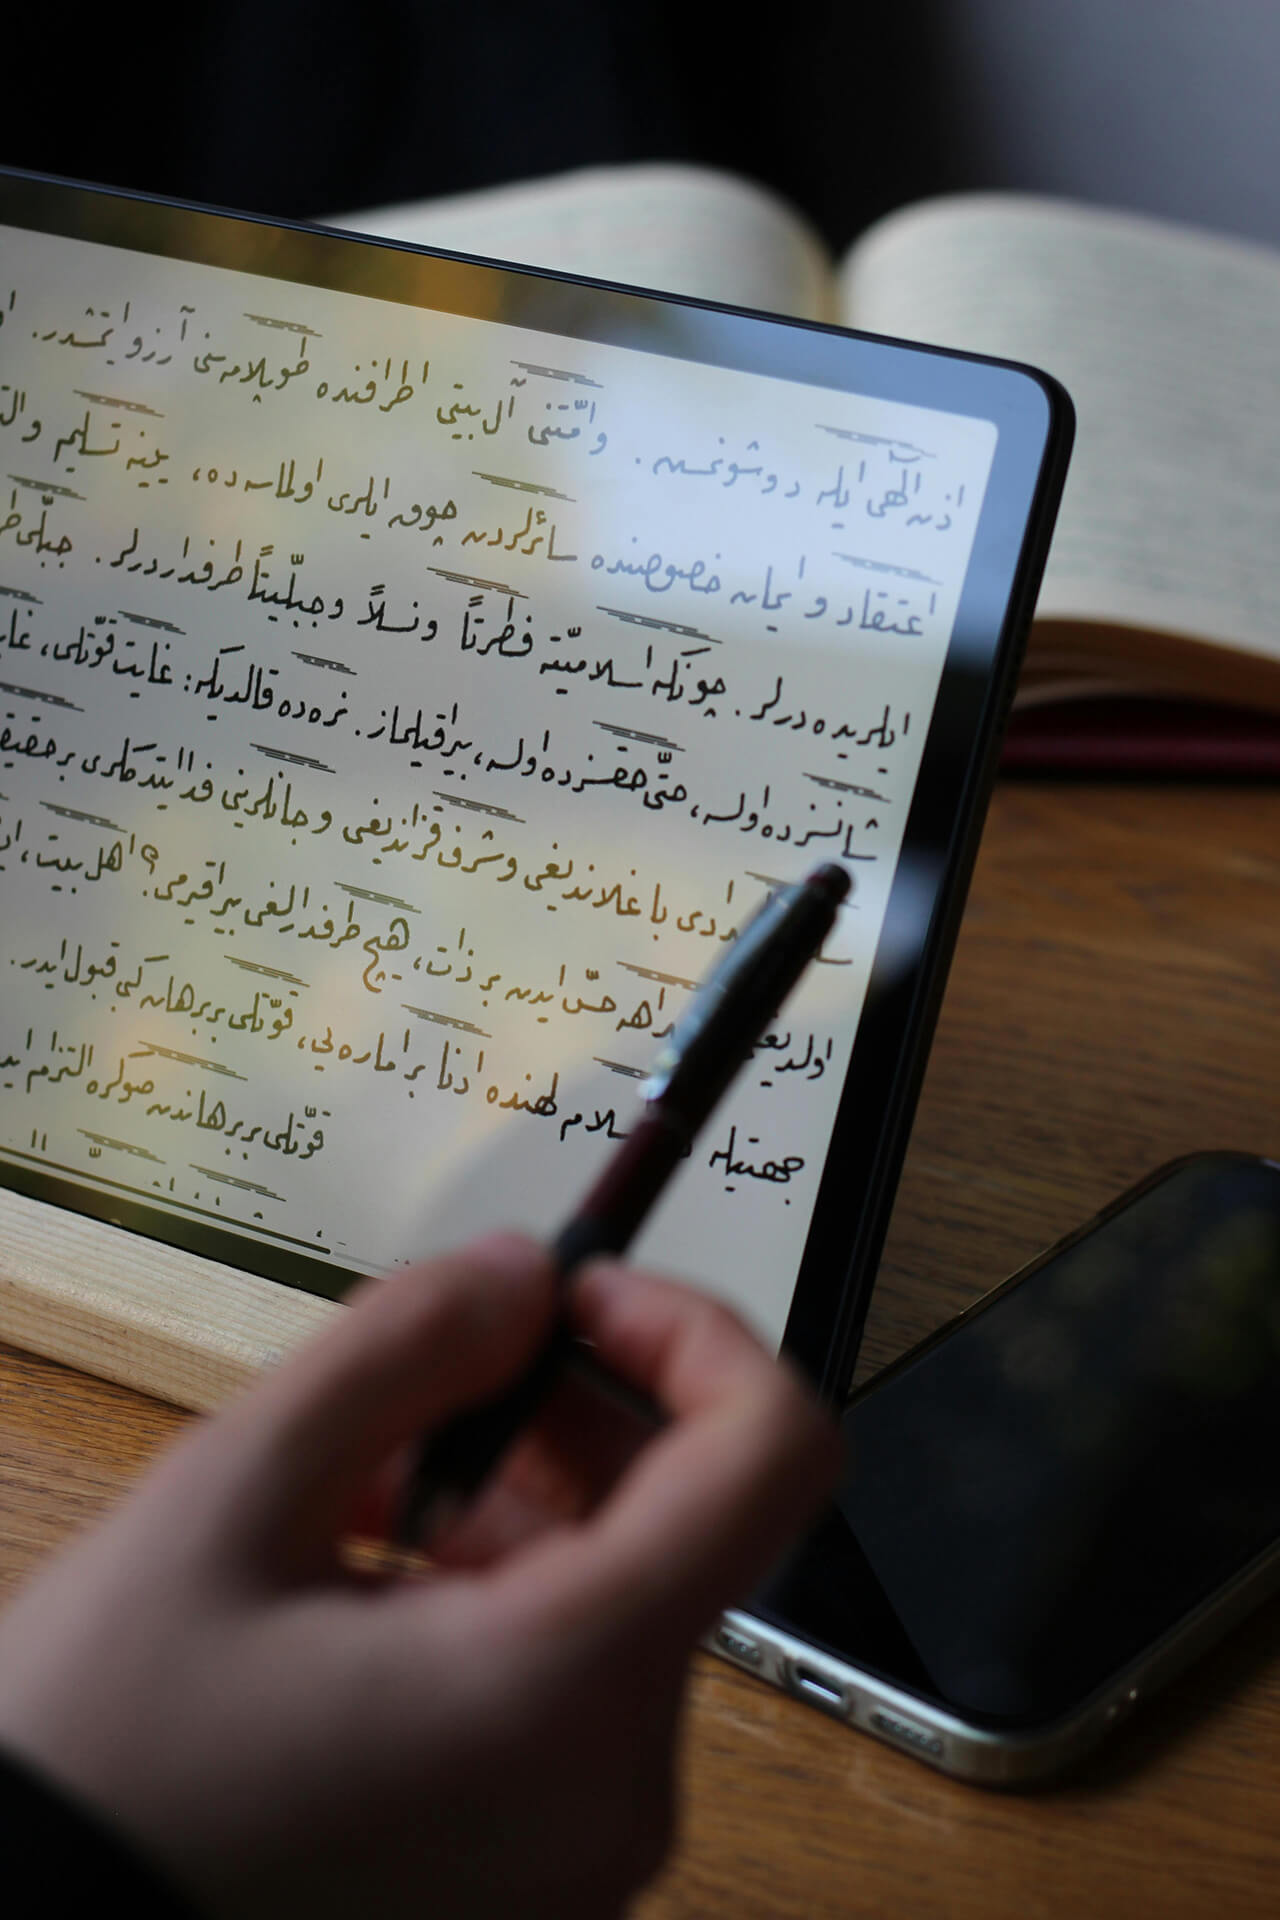 اذن الٓهی ایله دوشونمسن. وامّتنی آل بیتی اطرافنده طوپلامه‌سنی آرزو ایتمشدر.
اعتقاد و ایمان خصوصنده سائرلردن چوق ایلری اولماسه‌ده، یینه تسلیم و
ایلریده‌درلر. چونکه اسلامیّته فطرتاً و نسلاً و جبلّیتاً طرفداردرلر. جبلّی
شانسزده اولسه، حتّی حقسزده اولسه، بیراقیلماز. نره‌ده قالدیکه: غایت قوّتلی،
باغلاندیغی و شرف قزاندیغی و جانلرینی فدا ایتدکلری بر حقیقت
حسّ ایدن بر ذات، هیچ طرفدارلغی بیراقیرمی؟ اهل بیت،
جهتیله لهنده ادنا بر اماره‌یی، قوّتلی بر برهان کبی قبول ایدر.
قوّتلی بر برهاندن صوکره التزام